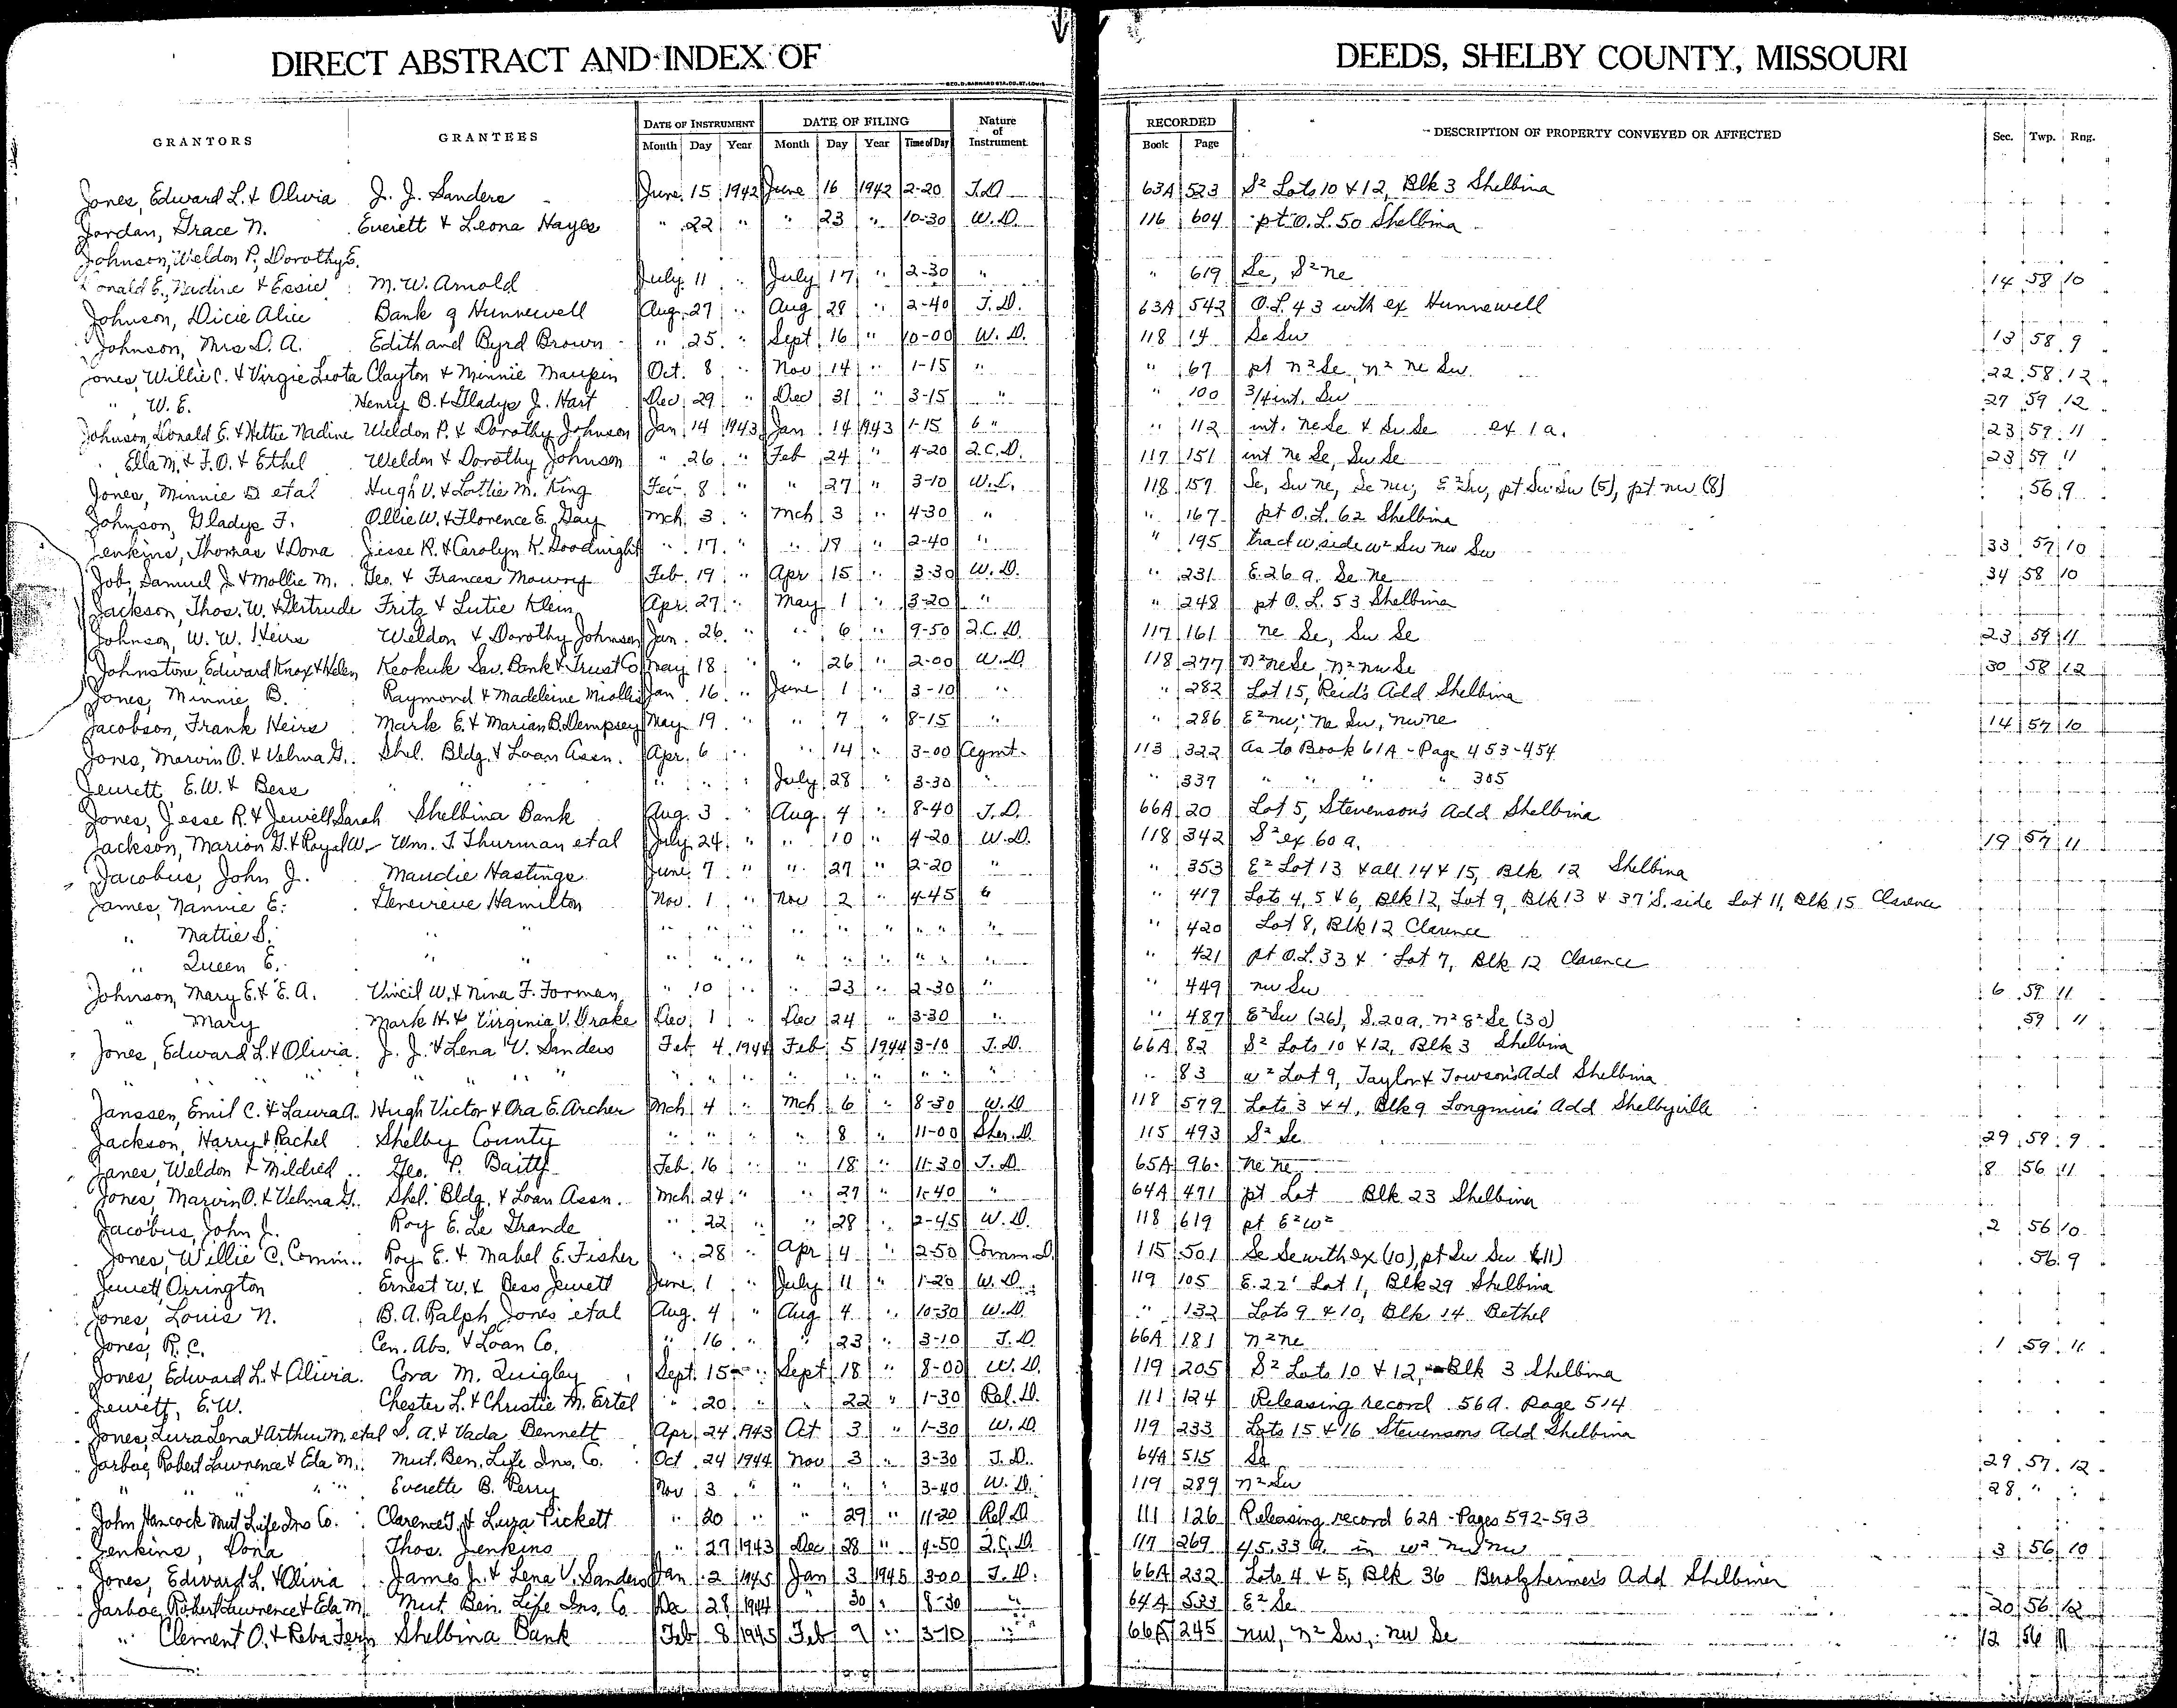 DIRECT ABSTRACT AND INDEX OF DEEDS, SHELBY COUNTY, MISSOURI
GRANTORS GRANTEES DATE OF INSTRUMENT DATE OF FILING Nature of Instrument RECORDED DESCRIPTION OF PROPERTY CONVEYED OR AFFECTED Sec. Twp. Rng.
Month Day Year Month Day Year Time of Day Book Page
Jones, Edward L. & Olivia J. J. Sanders June 15 1942 June 16 1942 2-20 T.D. 63A 523 S² Lots 10 & 12, Blk 3 Shelbina
Jordan, Grace N. Everett & Leona Hayes " 22 " " 23 " 10-30 W.D. 116 604 pt O.L. 50 Shelbina
Johnson, Weldon P., Dorothy E.
Donald E., Nadine & Essie M. W. Arnold July 11 " July 17 " 2-30 " " 619 Se, S² ne 14 58 10
Johnson, Dicie Alice Bank of Hunnewell Aug. 27 " Aug 28 " 2-40 T.D. 63A 542 O.L. 43 with ex Hunnewell
Johnson, Mrs D. A. Edith and Byrd Brown " 25 " Sept 16 " 10-00 W.D. 118 14 Se Sw 13 58 9
Jones, Willie C. & Virgie Leota Clayton & Minnie Maupin Oct. 8 " Nov 14 " 1-15 " " 67 pt n² Se, n² ne Sw 22 58 12
" , W. E. Henry B. & Gladys J. Hart Dec 29 " Dec 31 " 3-15 " " 100 3/4 int. Sw 27 59 12
Johnson, Donald E. & Hettie Nadine Weldon P. & Dorothy Johnson Jan 14 1943 Jan 14 1943 1-15 " " 112 int. ne Se & Sw Se ex 1 a. 23 59 11
" Ella M. & F. O. & Ethel Weldon & Dorothy Johnson " 26 " Feb 24 " 4-20 Q.C.D. 117 151 int ne Se, Sw Se 23 59 11
Jones, Minnie B etal Hugh V. & Lottie M. King Feb. 8 " " 27 " 3-10 W.D. 118 159 Se, Sw ne, Se nw, E² Sw, pt Sw Sw (5), pt nw (8) 56 9
Johnson, Gladys F. Ollie W. & Florence E. Gay Mch. 3 " Mch 3 " 4-30 " " 167 pt O.L. 62 Shelbina
Jenkins, Thomas & Dona Jesse R. & Carolyn K. Goodnight " 17 " " 18 " 2-40 " " 195 tract w side w² Sw nw Sw 33 57 10
Job, Samuel J. & Mollie M. Geo. & Frances Mowry Feb. 19 " Apr 15 " 3-30 W.D. " 231 E. 26 a. Se ne 34 58 10
Jackson, Thos. W. & Gertrude Fritz & Lutie Klein Apr. 27 " May 1 " 3-20 " " 248 pt O.L. 53 Shelbina
Johnson, W. W. Heirs Weldon & Dorothy Johnson Jan. 26 " " 6 " 9-50 Q.C.D. 117 161 ne Se, Sw Se 23 59 11
Johnstone, Edward Knox & Helen Keokuk Sav. Bank & Trust Co May 18 " " 26 " 2-00 W.D. 118 277 n² ne Se, n² nw Se 30 58 12
Jones, Minnie B. Raymond & Madeleine Jan. 16 " June 1 " 3-10 " " 282 Lot 15, Reid's Add Shelbina
Jacobson, Frank Heirs Mark E. & Marian B. Dempsey May 19 " " 7 " 8-15 " " 286 E² nw, ne Sw, nw ne 14 57 10
Jones, Marvin O. & Velma G. Shel. Bldg. & Loan Assn. Apr. 6 " " 14 " 3-00 Agmt. 113 322 As to Book 61A - Page 453-454
Jewett, E. W. & Bess " " " " " July 28 " 3-30 " " 337 " " " " 305
Jones, Jesse R. & Jewell Sarah Shelbina Bank Aug. 3 " Aug. 4 " 8-40 T.D. 66A 20 Lot 5, Stevenson's Add Shelbina
Jackson, Marion G. & Royal W. Wm. T. Thurman etal July 24 " " 10 " 4-20 W.D. 118 342 S² ex 60 a. 19 57 11
Jacobus, John J. Maudie Hastings June 7 " " 27 " 2-20 " " 353 E² Lot 13 & all 14 & 15, Blk 12 Shelbina
James, Nannie E. Genevieve Hamilton Nov. 1 " Nov 2 " 4-45 " " 419 Lots 4, 5 & 6, Blk 12, Lot 9, Blk 13 & 37' S. side Lot 11, Blk 15 Clarence
" Mattie S. " " " " " " " " " " " 420 Lot 8, Blk 12 Clarence
" Queen E. " " " " " " " " " " " 421 pt O.L. 33 & Lot 7, Blk 12 Clarence
Johnson, Mary E. & E. A. Vincil W. & Nina F. Forman " 10 " " 23 " 2-30 " " 449 nw Sw 6 59 11
" Mary Mark H. & Virginia V. Drake Dec. 1 " Dec 24 " 3-30 " " 487 E² Sw (26), S. 20 a. n² S² Se (30) 59 11
Jones, Edward L. & Olivia J. J. & Lena V. Sanders Feb 4 1944 Feb 5 1944 3-10 T.D. 66A 82 S² Lots 10 & 12, Blk 3 Shelbina
" " " " " " " " " " " " " " " " 83 w² Lot 9, Taylor & Towson's Add Shelbina
Janssen, Emil C. & Laura A. Hugh Victor & Ora E. Archer Mch 4 " Mch 6 " 8-30 W.D. 118 579 Lots 3 & 4, Blk 9 Longmire's Add Shelbyville
Jackson, Harry & Rachel Shelby County " " " " 8 " 11-00 Sher. D. 115 493 S² Se 29 59 9
Janes, Weldon & Mildred Geo. P. Baitly Feb. 16 " " 18 " 11-30 T.D. 65A 96 ne ne 8 56 11
Jones, Marvin O. & Velma G. Shel. Bldg. & Loan Assn. Mch. 24 " " 27 " 1-40 " 64A 471 pt Lot Blk 23 Shelbina
Jacobus, John J. Roy E. Le Grande " 22 " " 28 " 2-45 W.D. 118 619 pt E² W² 2 56 10
Jones, Willie C. Comm. Roy E. & Mabel E. Fisher " 28 " Apr 4 " 2-50 Comm. D. 115 501 Se Se with ex (10), pt Sw Sw (11) 56 9
Jewett, Orrington Ernest W. & Bess Jewett June 1 " July 11 " 1-20 W.D. 119 105 E. 22' Lot 1, Blk 29 Shelbina
Jones, Louis N. B. A. Ralph Jones etal Aug. 4 " Aug 4 " 10-30 W.D. " 132 Lots 9 & 10, Blk 14 Bethel
Jones, R. C. Cen. Abs. & Loan Co. " 16 " " 23 " 3-10 T.D. 66A 181 n² ne 1 59 11
Jones, Edward L. & Olivia. Cora M. Quigley Sept. 15 " Sept 18 " 8-00 W.D. 119 205 S² Lots 10 & 12, Blk 3 Shelbina
Jewett, E. W. Chester L. & Christie M. Ertel " 20 " " 22 " 1-30 Rel. D. 111 124 Releasing record 56A. Page 514
Jones, Lura Lena & Arthur M etal S. A. & Vada Bennett Apr 24 1943 Oct 3 " 1-30 W.D. 119 233 Lots 15 & 16 Stevensons Add Shelbina
Jarboe, Robert Lawrence & Eda M. Mut. Ben. Life Ins. Co. Oct 24 1944 Nov 3 " 3-30 T.D. 64A 515 Se 29 57 12
" " " " Everette B. Perry Nov 3 " " " " 3-40 W.D. 119 289 n² Sw 28 " "
John Hancock Mut Life Ins Co. Clarence T. & Luza Pickett " 20 " " 29 " 11-20 Rel D 111 126 Releasing record 62A - Pages 592-593
Jenkins, Dona Thos. Jenkins " 27 1943 Dec 28 " 9-50 Q.C.D. 117 269 45.33 a. in w² nw nw 3 56 10
Jones, Edward L. & Olivia James J. & Lena V. Sanders Jan 2 1945 Jan 3 1945 3-00 T.D. 66A 232 Lots 4 & 5, Blk 36 Add Shelbina
Jarboe, Robert Lawrence & Eda M. Mut. Ben. Life Ins. Co. Dec 28 1944 " 30 " 8-30 " 64A 533 E² Se 20 56 12
" Clement O. & Reba Fern Shelbina Bank Feb 8 1945 Feb 9 " 3-10 " 66A 245 nw, n² Sw, nw Se 12 56 11